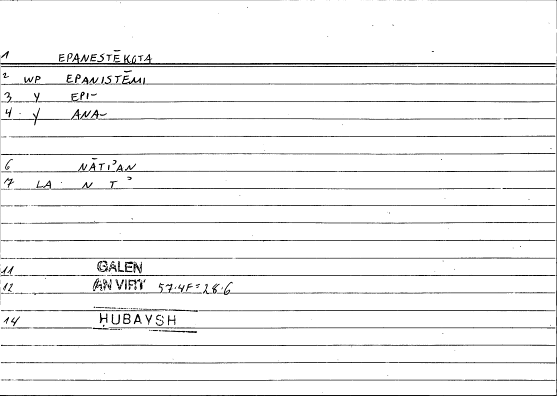 1 EPANESTĒKOTA
2 WP EPANISTĒMI
3 Y EPI-
4 Y ANA-
6 NĀTIʾAN
7 LA N T ʾ
11 GALEN
12 AN VIRT 57.4F=28.6
14 ḤUBAYSH